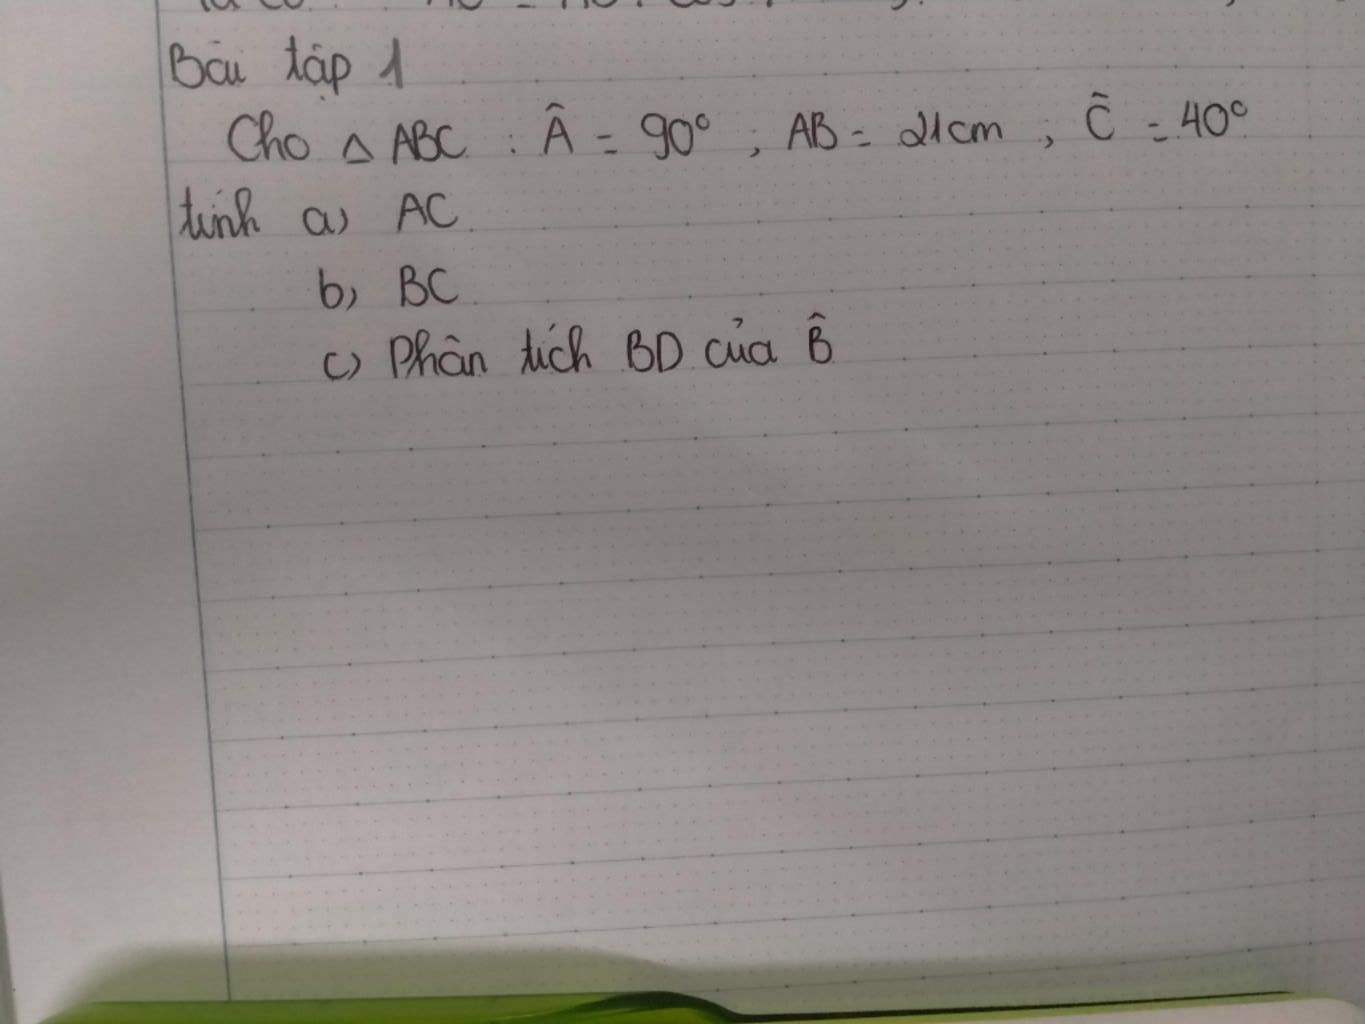 Bài tập 1
Cho △ ABC : Â = 90° ; AB = 21cm ; Ĉ = 40°
tính a) AC
b) BC
c) Phân tích BD của B̂